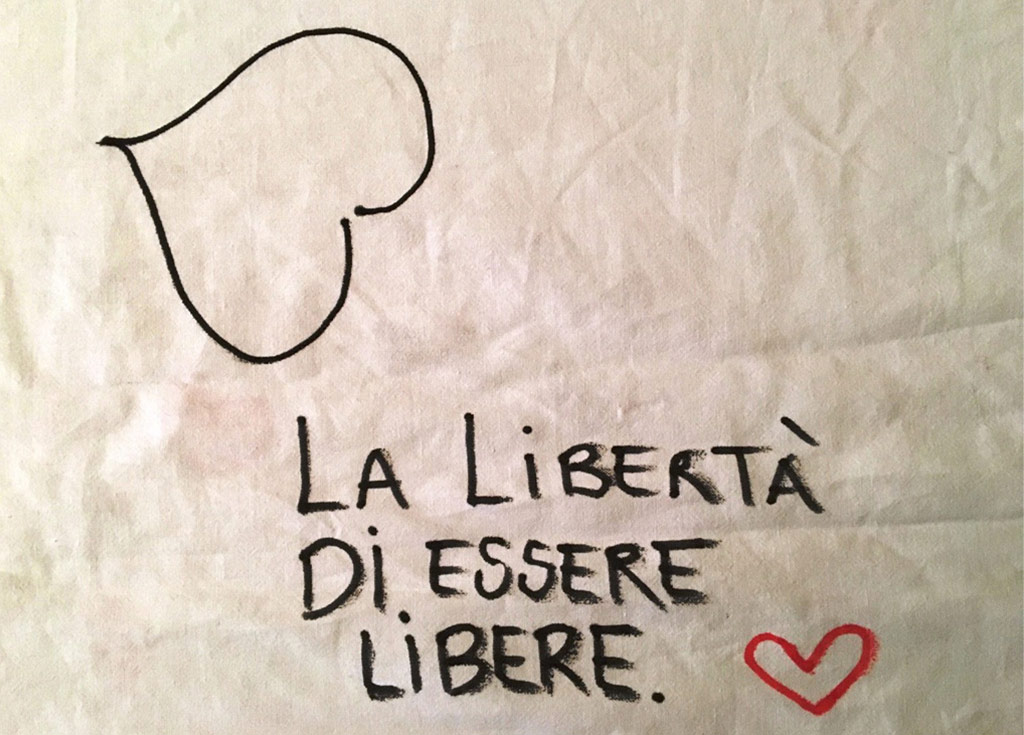 LA LiBERTÀ
Di ESSERE
LiBERE.